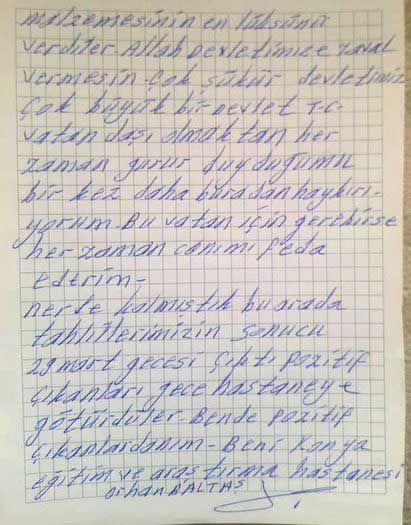 malzemesinin en lüksünü
verdiler. Allah Devletimize zaval
vermesin çok şükür devletimiz
çok büyük bir Devlet T.C.
vatandaşı olmaktan her
zaman gurur duyduğumu
bir kez daha buradan haykırı-
yorum. Bu vatan için gerekirse
her zaman canımı feda
ederim-
nerde kalmıştık bu arada
tahlillerimizin sonucu
29 mart gecesi çıktı pozitif
çıkanları gece hastaneye
götürdüler- Bende pozitif
çıkanlardanım- Beni Konya
eğitim ve araştırma hastanesi
orhan BALTAŞ